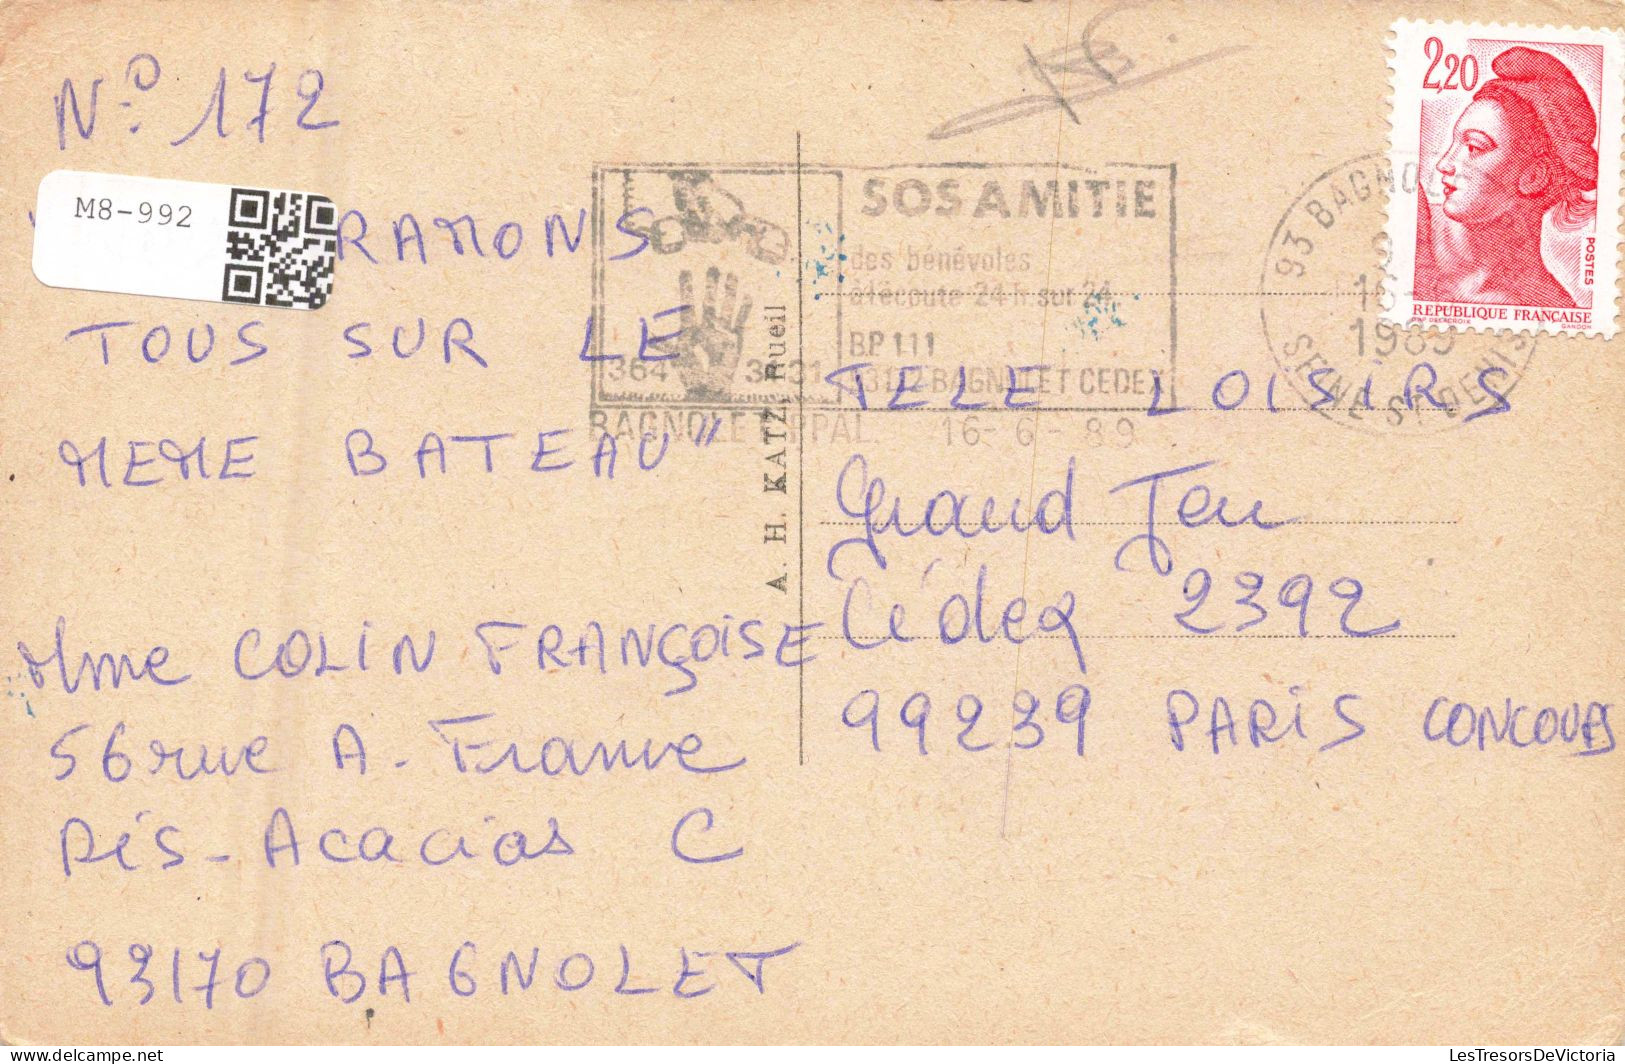 N° 172
M8-992
RAMONS
TOUS SUR LE
MEME BATEAU"
Mme COLIN FRANÇOISE
56 rue A. France
Rés-Acacias C
93170 BAGNOLET
A. H. KATZ, Rueil
SOS AMITIE
des bénévoles
à l'écoute 24 h. sur 24
B.P 111
BAGNOLET CEDEX
364 31
BAGNOLET PPAL 16-6-89
93 BAGNOLET
16
1989
SEINE ST DENIS
2,20
POSTES
REPUBLIQUE FRANÇAISE
D'AP DELACROIX GANDON
TELE LOISIRS
Grand Jeu
Cédex 2392
99239 PARIS CONCOURS
LesTresorsDeVictoria.com